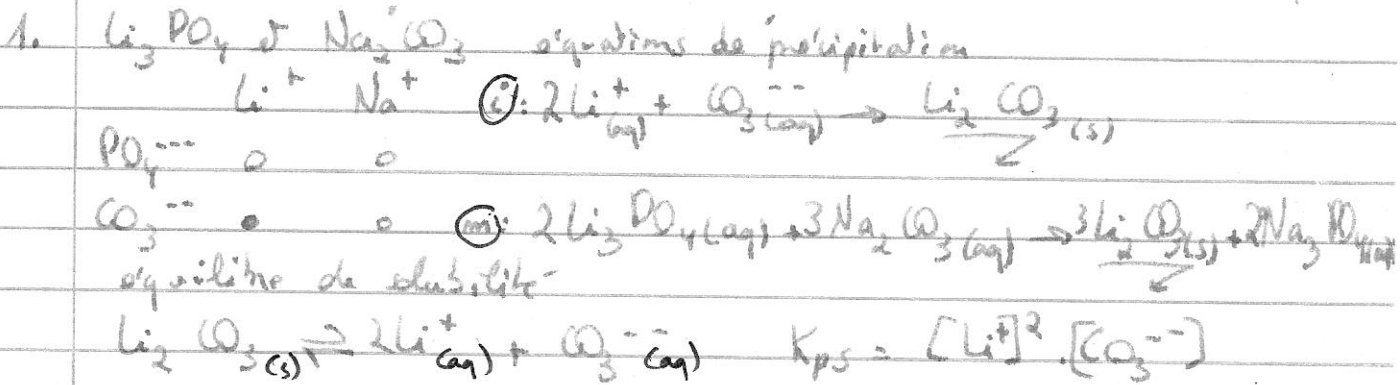 1. Li₃PO₄ et Na₂CO₃ équations de précipitation
Li⁺ Na⁺ (i): 2Li⁺(aq) + CO₃⁻⁻(aq) → Li₂CO₃(s) ↙
PO₄⁻⁻⁻ o o
CO₃⁻⁻ • o (m): 2Li₃PO₄(aq) + 3Na₂CO₃(aq) → 3Li₂CO₃(s) + 2Na₃PO₄(aq) ↙
équilibre de solubilité
Li₂CO₃(s) ⇌ 2Li⁺(aq) + CO₃⁻⁻(aq) Kps = [Li⁺]².[CO₃⁻⁻]